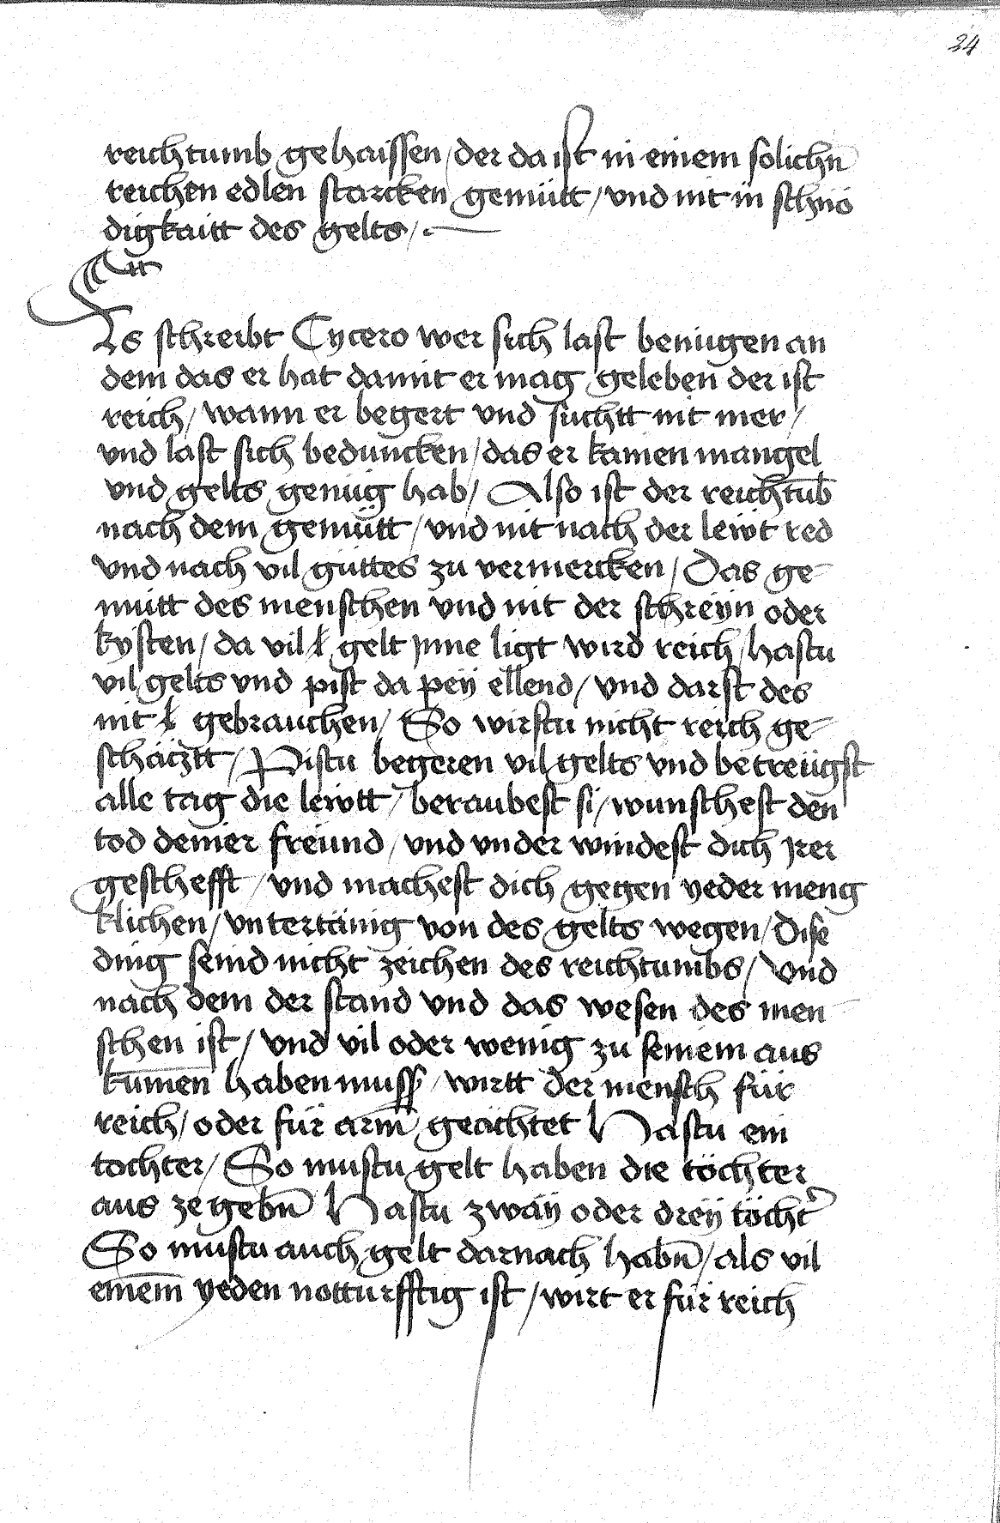 24
reichtumb gehaissen / der da ist in einem solichn̄
reichen edlen starcken gemütt / vnd nit in schnö
digkaitt des gelts /.
Es schreibt Cycero wer sich last benügen an
dem das er hat damit er mag geleben der ist
reich / wann er begert vnd suchtt nit mer /
vnd last sich beduncken / das er kainen mangel
vnd gelts genüg hab / Also ist der reichtūb
nach dem gemütt / vnd nit nach der lewt red
vnd nach vil güttes zu vermercken / Das ge-
mütt des menschen vnd nit der schreÿn oder
kysten / da vil gelt jnne ligt wird reich / hastu
vil gelts vnd pist da peÿ ellend / vnd darst des
nit gebrauchen / So wirstu nicht reich ge-
schätztt / Pistu begeren vil gelts vnd betreügst
alle tag die lewtt / beraubest si / wunschest den
tod deiner freünd / vnd vnder windest dich jrer
geschefft / vnd machest dich gegen yeder meng
klichen / vntertänig von des gelts wegen / Dise
ding seind nicht zeichen des reichtumbs / Vnd
nach dem der stand vnd das wesen des men-
schen ist / vnd vil oder wenig zu seinem aus
kūmen haben muss / wirtt der mensch für
reich / oder für arm̄ geächtet Hastu ein
tochter / So mustu gelt haben die töchter
aus ze gebn̄ Hastu zwäÿ oder dreÿ töcht̉
So mustu auch gelt darnach habn̄ / als vil
einem̄ yeden notturfftig ist / wirt er für reich